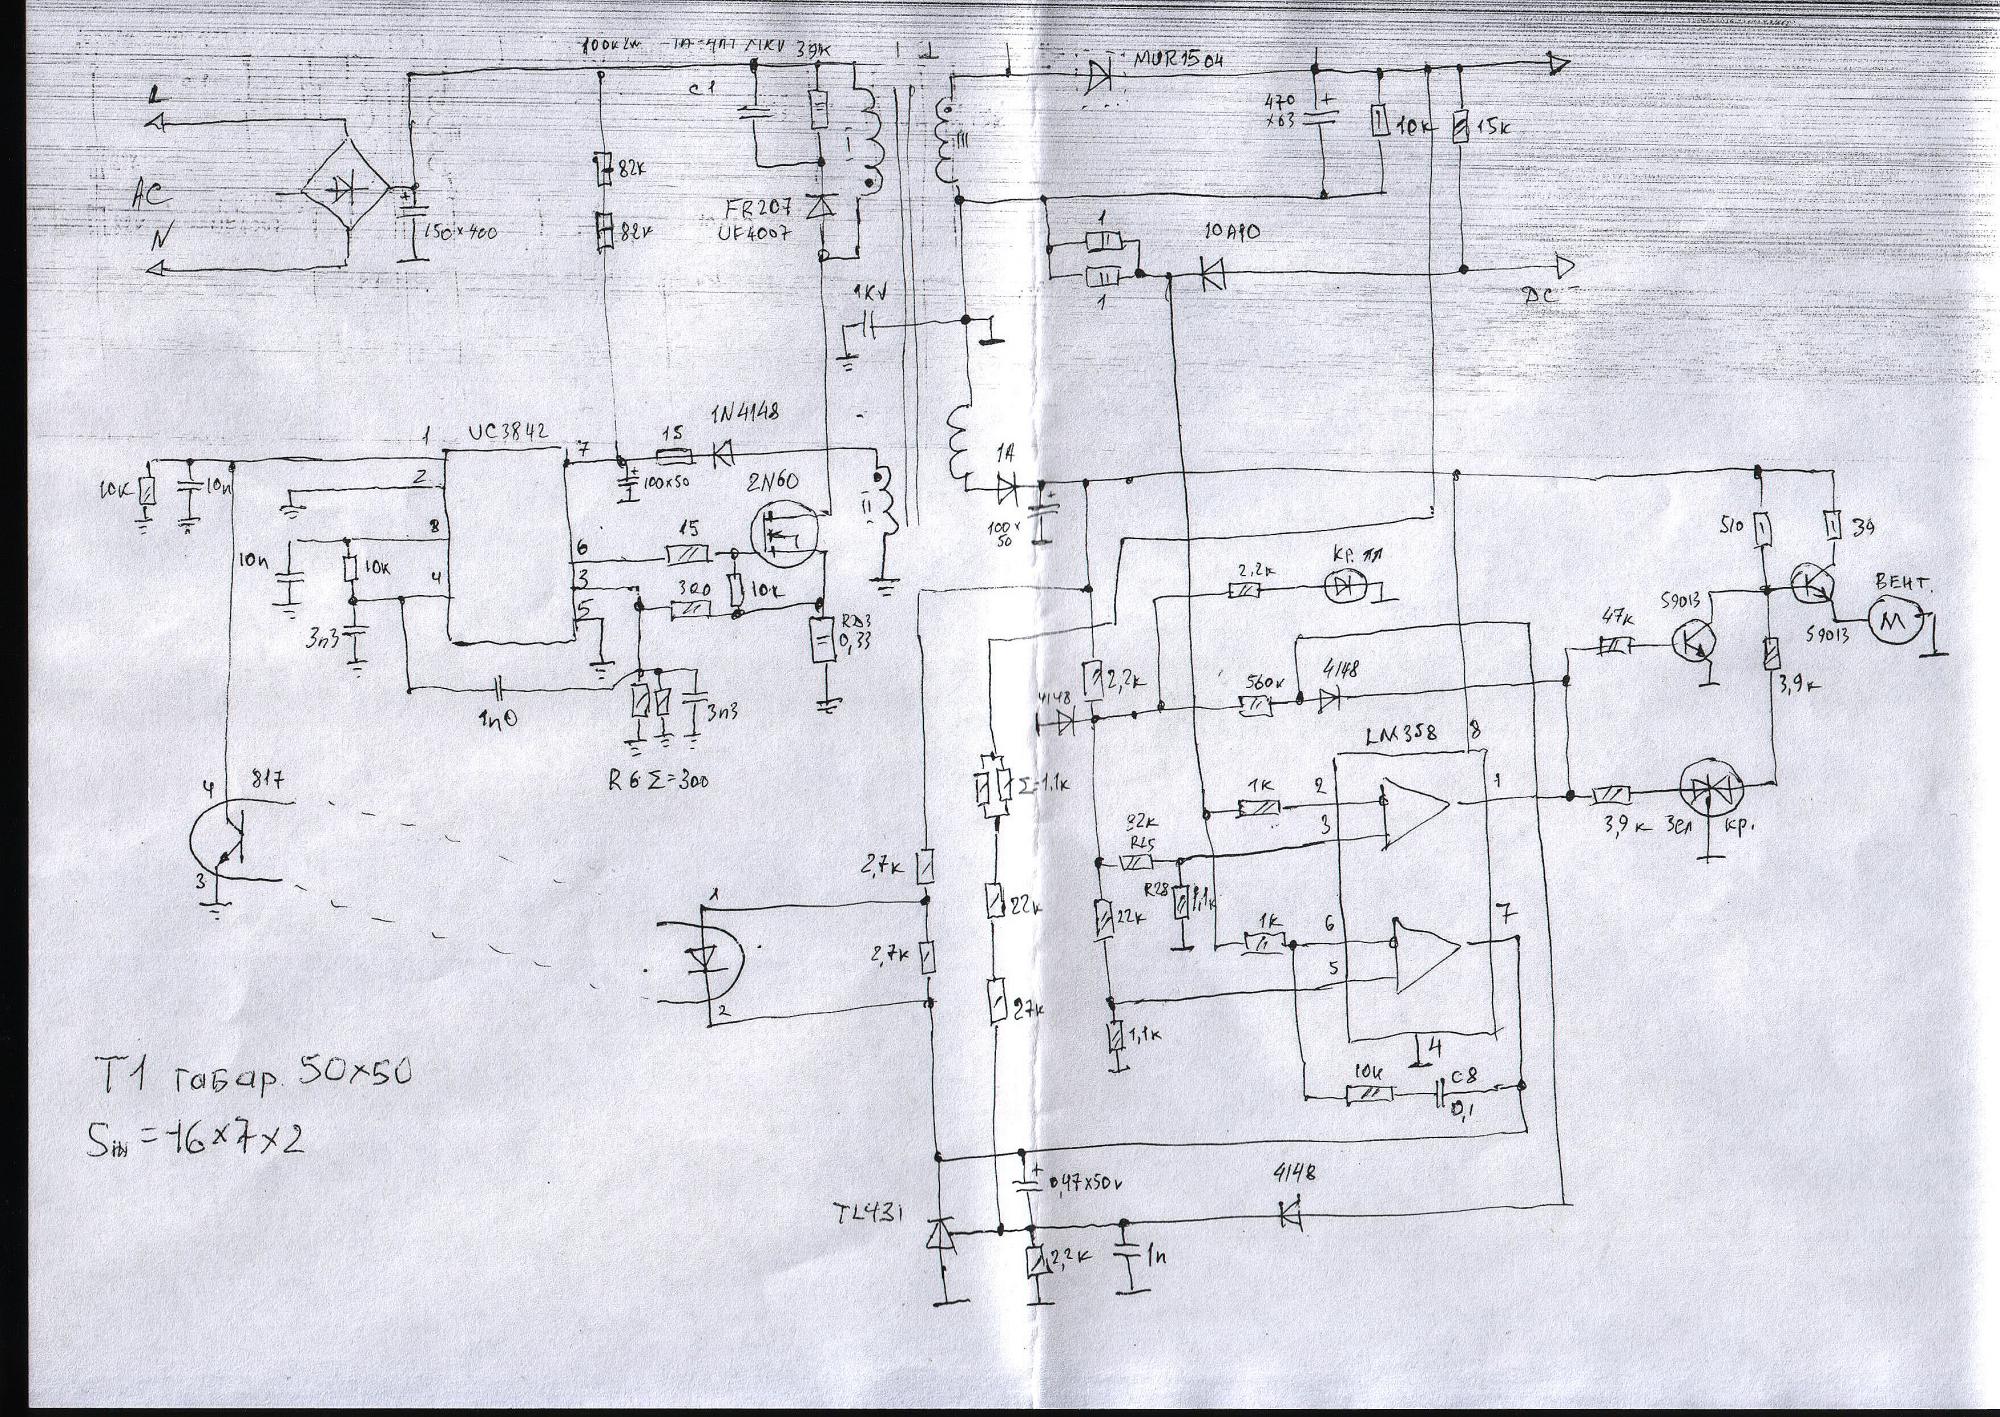 39K
L
C1
MUR1504
470
×63
10K
15K
82K
AC
FR207
UF4007
N
150×400
82K
1
10A10
1
DC
1KV
1N4148
1
UC3842
7
15
2
10K
10n
100×50
2N60
II
1A
100×
50
8
10n
10K
4
6
15
3
300
10K
5
3n3
RD3
0,33
1n0
3n3
R6 Σ=300
КР.
2,2K
510
39
ВЕНТ.
S9013
S9013
M
47K
2,2K
4148
560K
4148
3,9K
LM358
8
4
817
Σ=1.1K
1K
2
1
3
3,9K
Зел
КР.
R25
2,7K
R28
1,1K
3
1
22K
22K
1K
6
7
5
2,7K
2
27K
1,1K
4
10K
C8
0,1
T1 габар. 50×50
=16×7×2
0,47×50V
4148
TL431
2,2K
1n